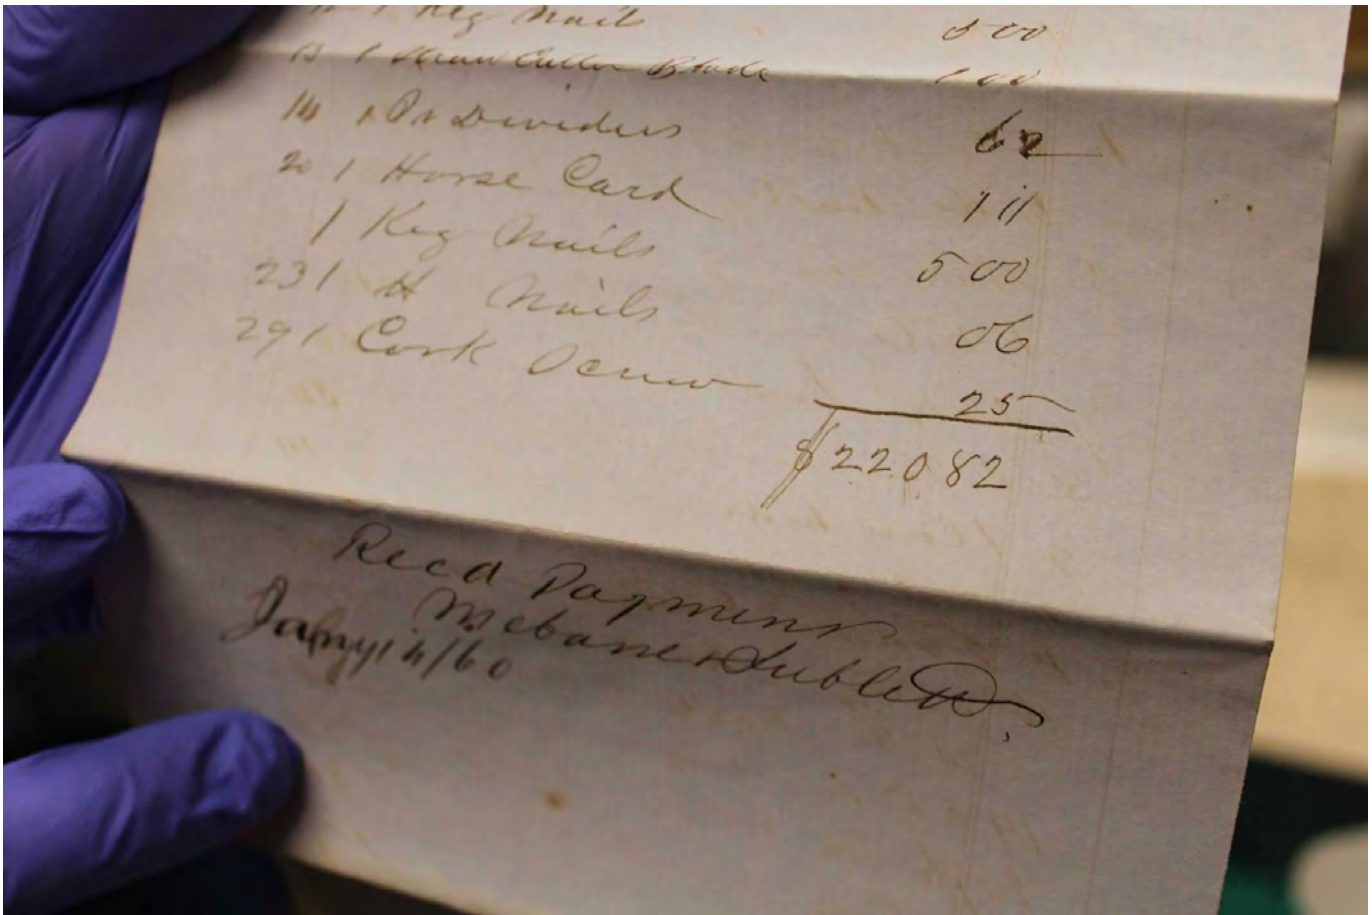 1 Keg Nails 5 00
13 1 Straw Cutter Blade 1 00
14 1 Pr Dividers 62
20 1 Horse Card
1 Keg Nails 5 00
23 1 H Nails 06
29 1 Cork Screw 25
$220 82
Recd Payment
Mebane & Sublett
Jany 14/60